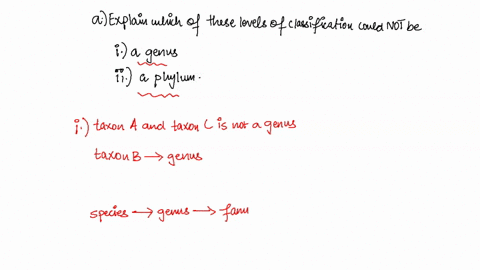 a.) Explain which of these levels of classification could NOT be
i.) a genus
ii.) a phylum.
i.) taxon A and taxon C is not a genus
taxon B → genus
species → genus → fam